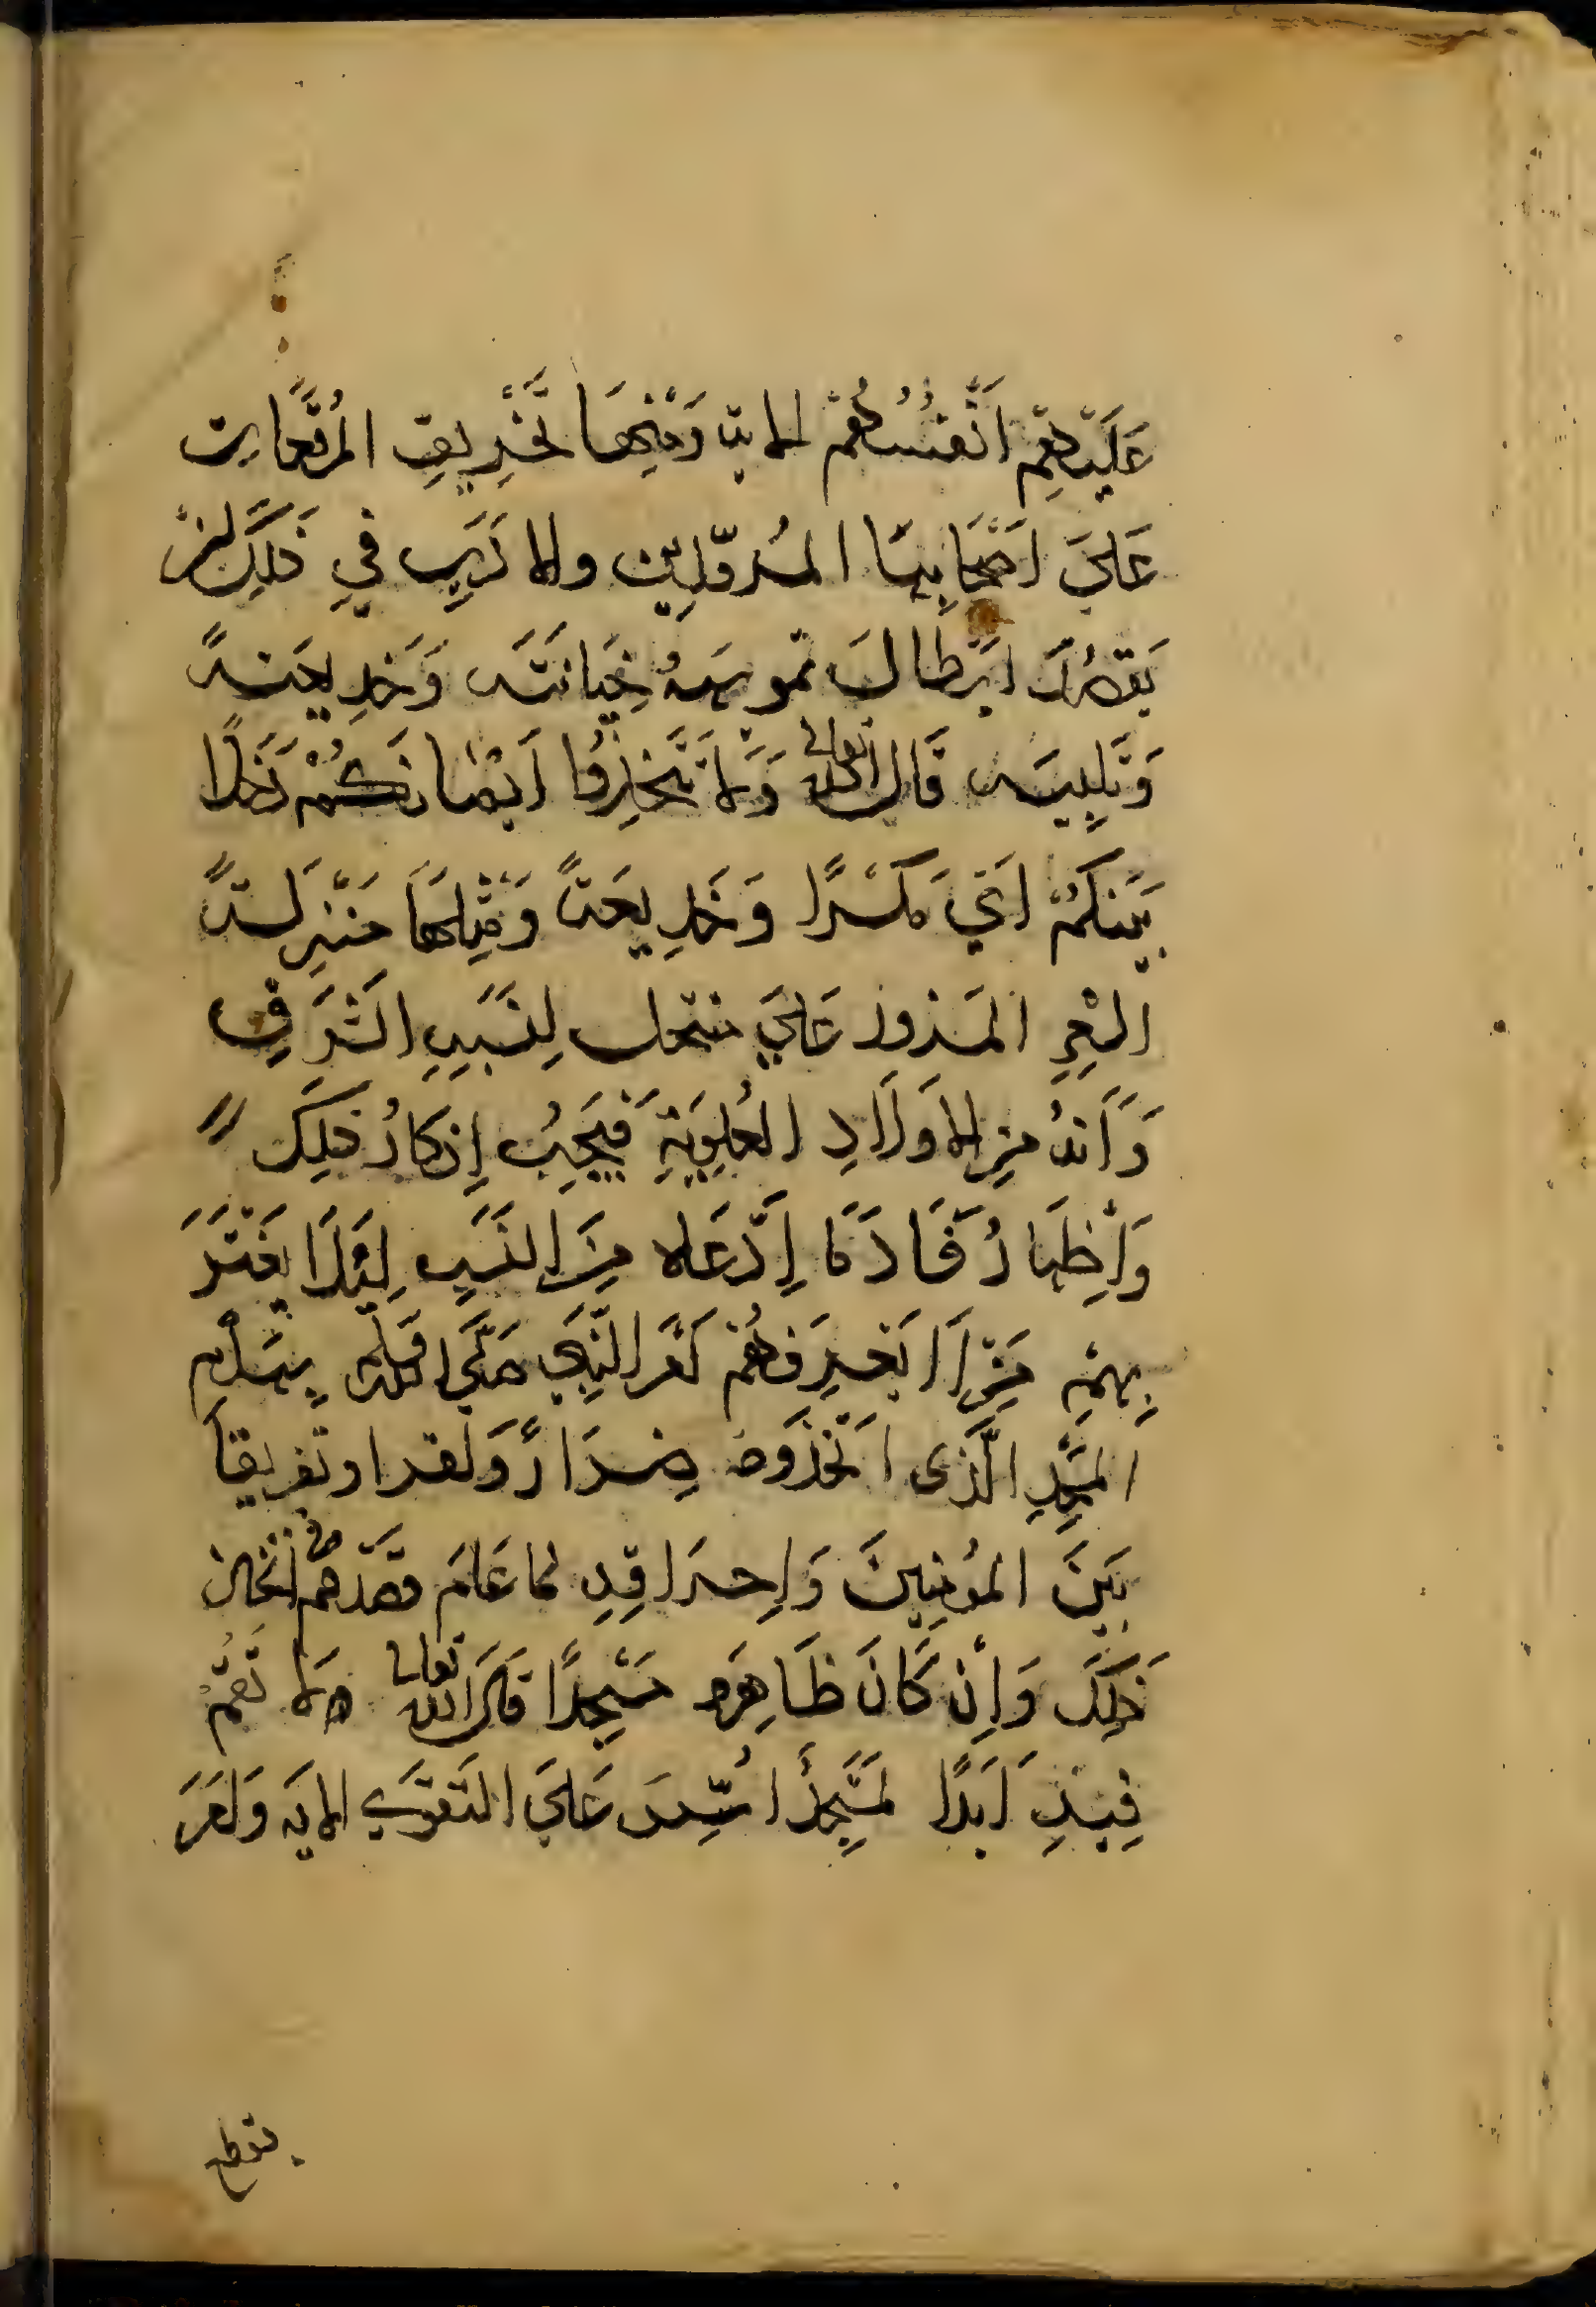 عَلَيْهِم اَنْفُسُهُمْ الاية وَمِنْهَا تَخْرِيقِ المُرقعات
عَلَى اَصْحَابِهَا المُدوّلين ولا رَيبَ فِي ذَلِكَ لِمَنْ
يَقصُدُ اِبْطالَ تمويهُ خِيانَتَه وَخَدِيعَتهُ
وَتَلبِيسَه قَالَ الله تعالى وَلَا تَتَّخِذُوا اَيْمَانَكُمْ دَخَلًا
بَيْنَكُمْ اَيْ مَكْرًا وَخَدِيعَةً وَمِثْلِهَا مَنْزِلَةً
المَزور عَلَى منتحل لِنَسَبِ الشَرَفِ
وَاَنهُ مِنَ الاَولَادِ العُلوِيَةِ فَيَجِبُ اِنكَارُ ذَلِكَ
وَاِظهَارُ فَسَادَ مَا اِدَّعَاه مِنَ النَسَبِ لِئَلَا يَغْتَرَّ
بِهِمْ مَنْ لَا يَعْرِفهُمْ اَمَرَ النَّبِي صَلّى الله بِهَدْم
المَسْجِدِ الَّذى اتَّخَذوه ضِرَارً وَكفرا وتفريقاً
بَيْنَ المؤمِنِينَ وَاِحراقِهِ لما عَلمَ قصدَهم من اتخاذ
ذَلِكَ وَاِن كَانَ ظَاهِرَه مَسْجِدًا قَالَ الله تعالى لا تَقُمْ
فِيهِ اَبَدًا لَمَسْجِدٌ اُسِّسَ عَلَى التَقوَى الاية وَاَمَرَ
بقطع